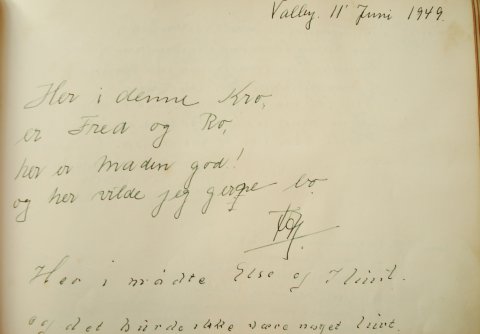 Valby. 11' Juni 1949.
Her i denne Kro,
er Fred og Ro,
her er Maden god!
og her vilde jeg gerne bo.
Her i mødte Else og
og det burde ikke være noget